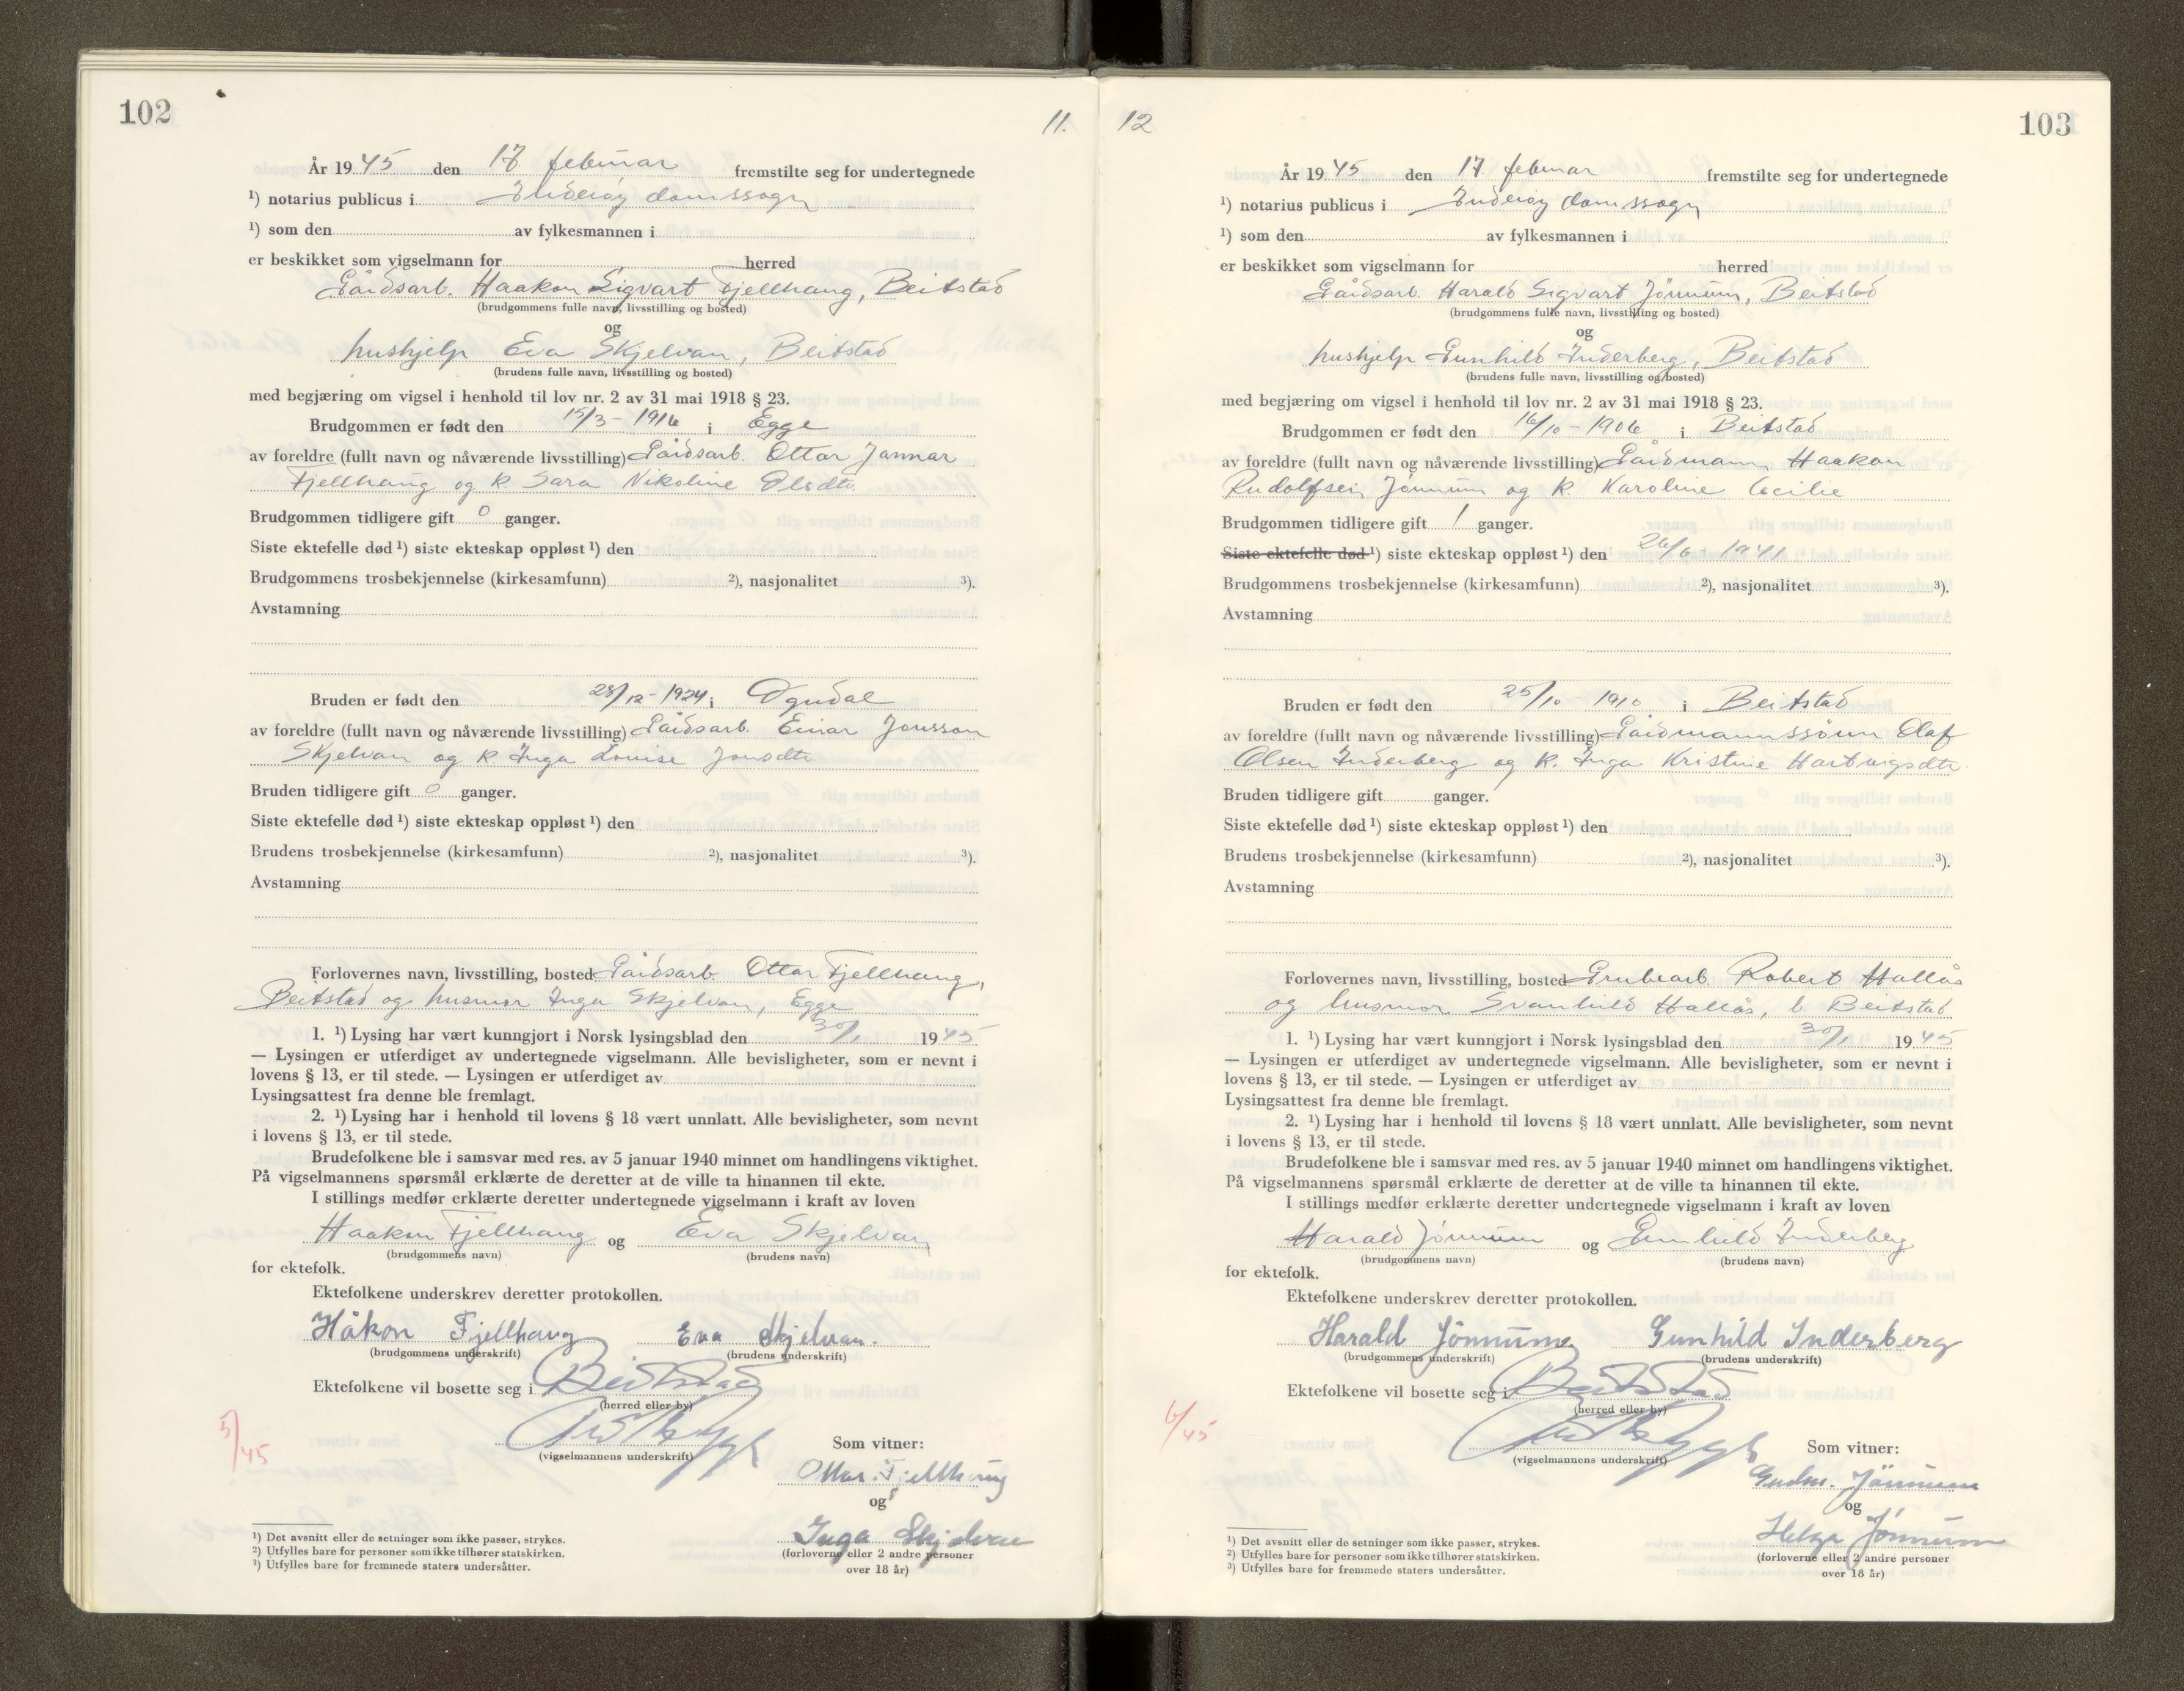 102
11.
År 1945 den 17. februar fremstilte seg for undertegnede
¹) notarius publicus i Inderøy domssogn
¹) som den av fylkesmannen i
er beskikket som vigselmann for herred
Gårdsarb. Haakon Sigvart Fjellhaug, Beitstad
(brudgommens fulle navn, livsstilling og bosted)
og
hushjelp Eva Skjelvan, Beitstad
(brudens fulle navn, livsstilling og bosted)
med begjæring om vigsel i henhold til lov nr. 2 av 31 mai 1918 § 23.
Brudgommen er født den 15/3 - 1916 i Egge
av foreldre (fullt navn og nåværende livsstilling) Gårdsarb. Ottar Jannar
Fjellhaug og k. Sara Nikoline Olsdtr.
Brudgommen tidligere gift 0 ganger.
Siste ektefelle død ¹) siste ekteskap oppløst ¹) den
Brudgommens trosbekjennelse (kirkesamfunn) ²), nasjonalitet ³).
Avstamning
Bruden er født den 28/12 - 1924 i Ogndal
av foreldre (fullt navn og nåværende livsstilling) Gårdsarb. Einar Jonsson
Skjelvan og k Inga Lovise Jonsdtr.
Bruden tidligere gift 0 ganger.
Siste ektefelle død ¹) siste ekteskap oppløst ¹) den
Brudens trosbekjennelse (kirkesamfunn) ²), nasjonalitet ³).
Avstamning
Forlovernes navn, livsstilling, bosted Gårdsarb. Ottar Fjellhaug,
Beitstad og husmor Inga Skjelvan, Egge
1. ¹) Lysing har vært kunngjort i Norsk lysingsblad den 30/1 1945
— Lysingen er utferdiget av undertegnede vigselmann. Alle bevisligheter, som er nevnt i
lovens § 13, er til stede. — Lysingen er utferdiget av
Lysingsattest fra denne ble fremlagt.
2. ¹) Lysing har i henhold til lovens § 18 vært unnlatt. Alle bevisligheter, som nevnt
i lovens § 13, er til stede.
Brudefolkene ble i samsvar med res. av 5 januar 1940 minnet om handlingens viktighet.
På vigselmannens spørsmål erklærte de deretter at de ville ta hinannen til ekte.
I stillings medfør erklærte deretter undertegnede vigselmann i kraft av loven
Haakon Fjellhaug og Eva Skjelvan
(brudgommens navn) (brudens navn)
for ektefolk.
Ektefolkene underskrev deretter protokollen.
Håkon Fjellhaug Eva Skjelvan.
(brudgommens underskrift) (brudens underskrift)
Ektefolkene vil bosette seg i Beitstad
(herred eller by)
5/45
Som vitner:
(vigselmannens underskrift)
Ottar Fjellhaug
og
Inga Skjelvan
(forloverne eller 2 andre personer
over 18 år)
¹) Det avsnitt eller de setninger som ikke passer, strykes.
²) Utfylles bare for personer som ikke tilhører statskirken.
³) Utfylles bare for fremmede staters undersåtter.
12
103
År 1945 den 17. februar fremstilte seg for undertegnede
¹) notarius publicus i Inderøy domssogn
¹) som den av fylkesmannen i
er beskikket som vigselmann for herred
Gårdsarb. Harald Sigvart Jönnum, Beitstad
(brudgommens fulle navn, livsstilling og bosted)
og
hushjelp Gunhild Inderberg, Beitstad
(brudens fulle navn, livsstilling og bosted)
med begjæring om vigsel i henhold til lov nr. 2 av 31 mai 1918 § 23.
Brudgommen er født den 16/10 - 1906 i Beitstad
av foreldre (fullt navn og nåværende livsstilling) Gårdmann Haakon
Rudolfsen Jönnum og k. Karoline Cecilie
Brudgommen tidligere gift 1 ganger.
Siste ektefelle død ¹) siste ekteskap oppløst ¹) den 26/6 - 1941
Brudgommens trosbekjennelse (kirkesamfunn) ²), nasjonalitet ³).
Avstamning
Bruden er født den 25/10 - 1910 i Beitstad
av foreldre (fullt navn og nåværende livsstilling) Gårdmannssönn Olaf
Olsen Inderberg og k. Inga Kristine Hartvigsdtr.
Bruden tidligere gift ganger.
Siste ektefelle død ¹) siste ekteskap oppløst ¹) den
Brudens trosbekjennelse (kirkesamfunn) ²), nasjonalitet ³).
Avstamning
Forlovernes navn, livsstilling, bosted Grubearb. Robert Hallås
og husmor Svanhild Hallås, b. Beitstad
1. ¹) Lysing har vært kunngjort i Norsk lysingsblad den 30/1 1945
— Lysingen er utferdiget av undertegnede vigselmann. Alle bevisligheter, som er nevnt i
lovens § 13, er til stede. — Lysingen er utferdiget av
Lysingsattest fra denne ble fremlagt.
2. ¹) Lysing har i henhold til lovens § 18 vært unnlatt. Alle bevisligheter, som nevnt
i lovens § 13, er til stede.
Brudefolkene ble i samsvar med res. av 5 januar 1940 minnet om handlingens viktighet.
På vigselmannens spørsmål erklærte de deretter at de ville ta hinannen til ekte.
I stillings medfør erklærte deretter undertegnede vigselmann i kraft av loven
Harald Jönnum og Gunhild Inderberg
(brudgommens navn) (brudens navn)
for ektefolk.
Ektefolkene underskrev deretter protokollen.
Harald Jönnum Gunhild Inderberg
(brudgommens underskrift) (brudens underskrift)
Ektefolkene vil bosette seg i Beitstad
(herred eller by)
6/45
Som vitner:
(vigselmannens underskrift)
Gudm. Jönnum
og
Helga Jönnum
(forloverne eller 2 andre personer
over 18 år)
¹) Det avsnitt eller de setninger som ikke passer, strykes.
²) Utfylles bare for personer som ikke tilhører statskirken.
³) Utfylles bare for fremmede staters undersåtter.